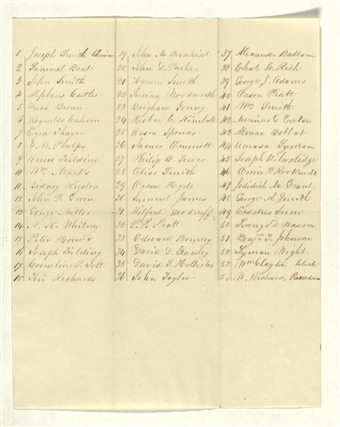 1 Joseph Smith Chairman
2 Samuel Bent
3 John Smith
4 Alpheus Cutler
5 Uriah Brown
6 Reynolds Cahoon
7 Ezra Thayer
8 W. W. Phelps
9 Amos Fielding
10 Wm. Marks
11 Sidney Rigdon
12 John P. Green
13 George Miller
14 N. K. Whitney
15 Peter Haws
16 Joseph Fielding
17 Cornelius P. Lott
18 Levi Richards
19 John M. Bernhisel
20 John D. Parker
21 Hyrum Smith
22 Lucien Woodworth
23 Brigham Young
24 Heber C. Kimball
25 Orson Spencer
26 James Emmett
27 Philip B. Lewis
28 Elias Smith
29 Orson Hyde
30 Samuel James
31 Wilford Woodruff
32 P. P. Pratt
33 Edward Bonney
34 David D. Yearsley
35 David S. Hollister
36 John Taylor
37 Alexander Badlam
38 Chas. C. Rich
39 George J. Adams
40 Orson Pratt
41 Wm Smith
42 Merinus G. Eaton
43 Almon Babbit
44 Amasa Lyman
45 Joseph W. Coolidge
46 Orrin P. Rockwell
47 Jedidiah M. Grant
48 George A. Smith
49 Erastus Snow
50 Lorenzo D. Wasson
51 Benjn F. Johnson
52 Lyman Wight
53 Wm Clayton Clerk
54 W. Richards Recorder